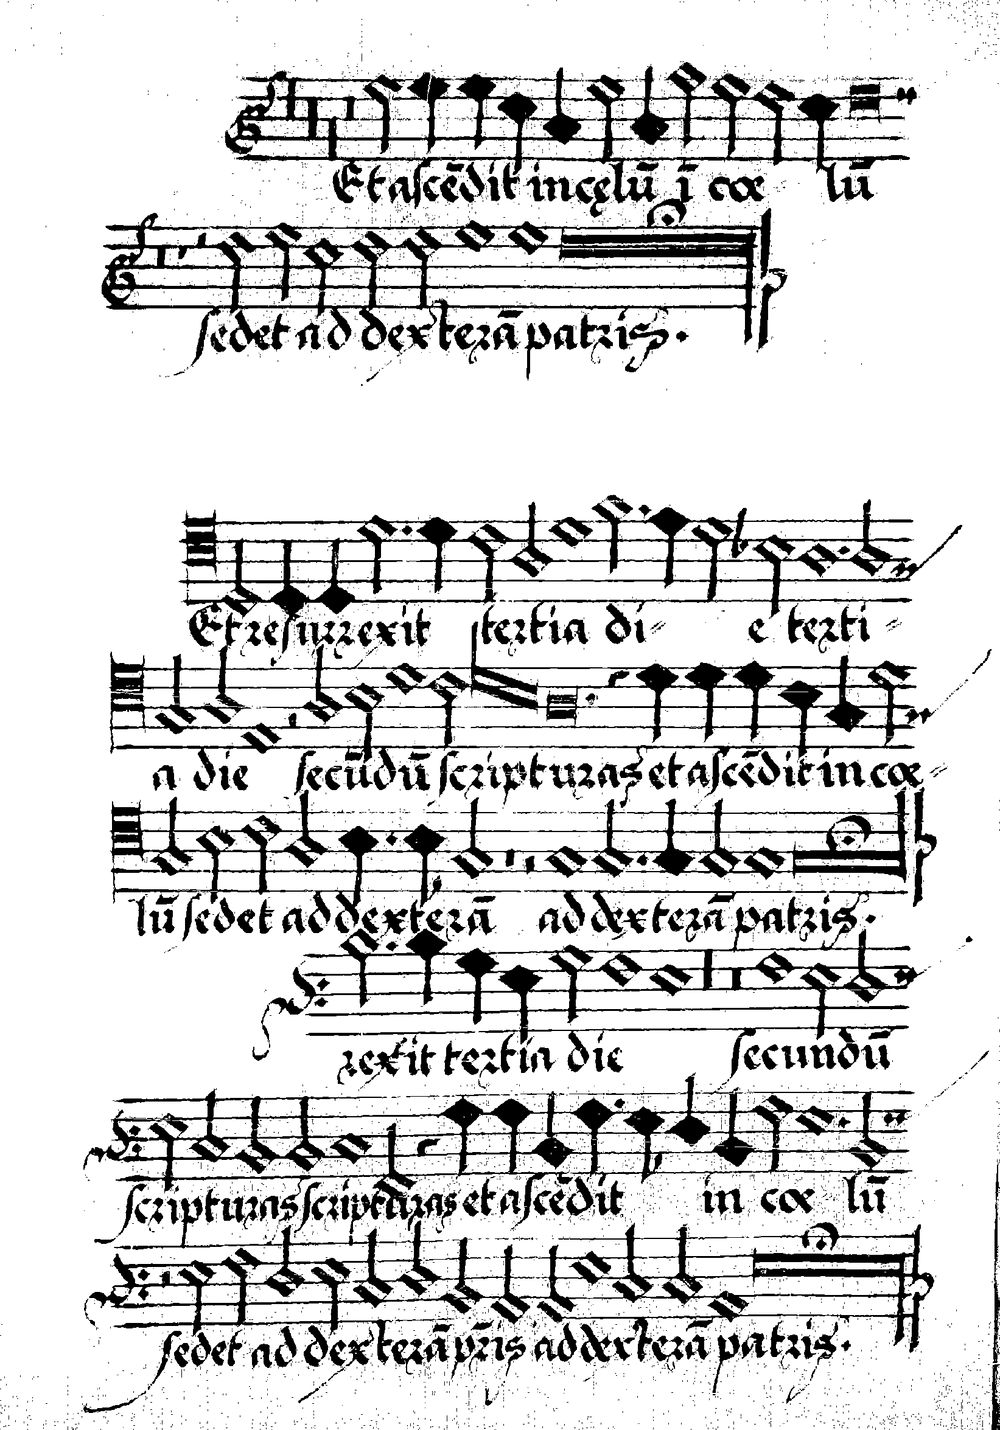 Et ascēdit in cęlū ī cœ lū
sedet ad dexterā patris.
Et resurrexit tertia di⸗ e terti⸗
a die secūdū scripturas et ascēdit in cœ⸗
lū sedet ad dexterā ad dexterā patris.
rexit tertia die secundū
scripturas scripturas et ascēdit in cœ lū
sedet ad dexterā pr̄is ad dexterā patris.